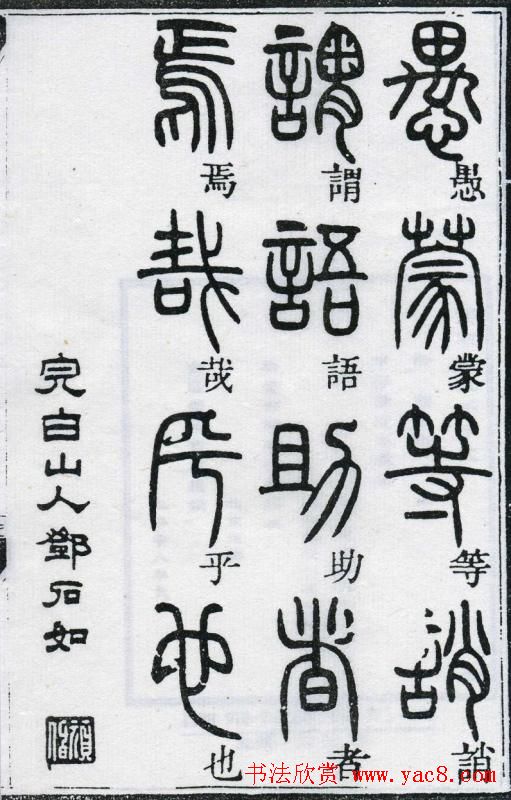 愚蒙等誚
愚蒙等誚
謂語助者
謂語助者
焉哉乎也
焉哉乎也
完白山人鄧石如
书法欣赏 www.yac8.com